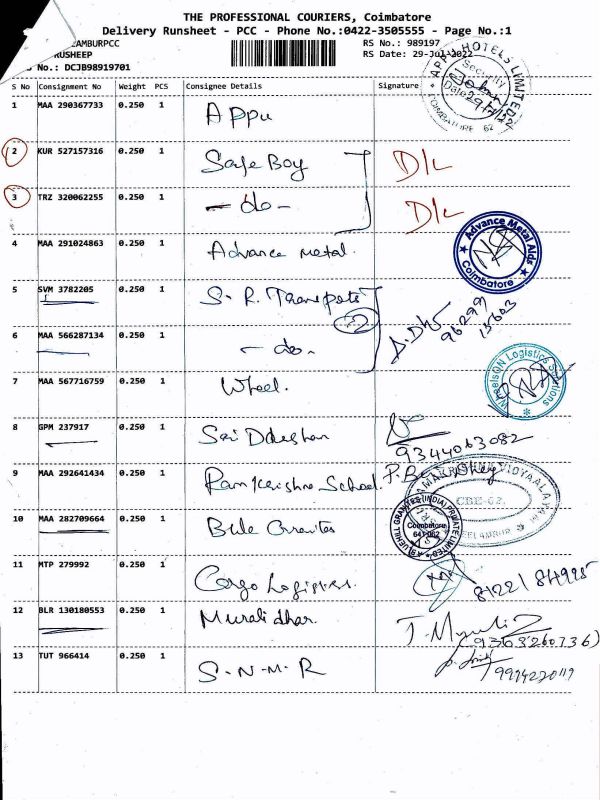 THE PROFESSIONAL COURIERS, Coimbatore
Delivery Runsheet - PCC - Phone No.:0422-3505555 - Page No.:1
RS No.: 989197
RUSHEEP RS Date: 29-Jul-2022
No.: DCJB98919701
S No Consignment No Weight PCS Consignee Details Signature
APPU HOTELS LIMITED
Security
Date 29/7/22
COIMBATORE 62
1 MAA 290367733 0.250 1 Appu
2 KUR 527157316 0.250 1 Safe Boy D/L
3 TRZ 320062255 0.250 1 - do - D/L
4 MAA 291024863 0.250 1 Advance metal.
Advance Metal Aids
Coimbatore
5 SVM 3782205 0.250 1 S. R. Transports
2
6 MAA 566287134 0.250 1 - do.
96299
13603
7 MAA 567716759 0.250 1 Wheel.
WheelsON Logistics Solutions
8 GPM 237917 0.250 1 Sai
9344063082
9 MAA 292641434 0.250 1 Ramkrishna School.
RAMAKRISHNA VIDYAALAYA
CBE-62.
10 MAA 282709664 0.250 1
BLUEHILL GRANITES (INDIA) PRIVATE LIMITED
Coimbatore
641 062
11 MTP 279992 0.250 1 Cargo Logistics. 81221 84995
12 BLR 130180553 0.250 1 Muralidhar.
(9363260736)
13 TUT 966414 0.250 1 S-N-M-R
9994220119